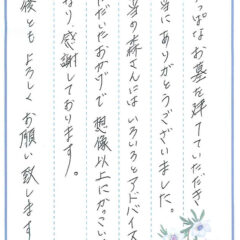 っぱなお墓を建てていただき
当にありがとうございました。
当の森さんにはいろいろとアドバイス
ただいたおかげで想像以上にかっこい
なり、感謝しております。
後ともよろしくお願い致します